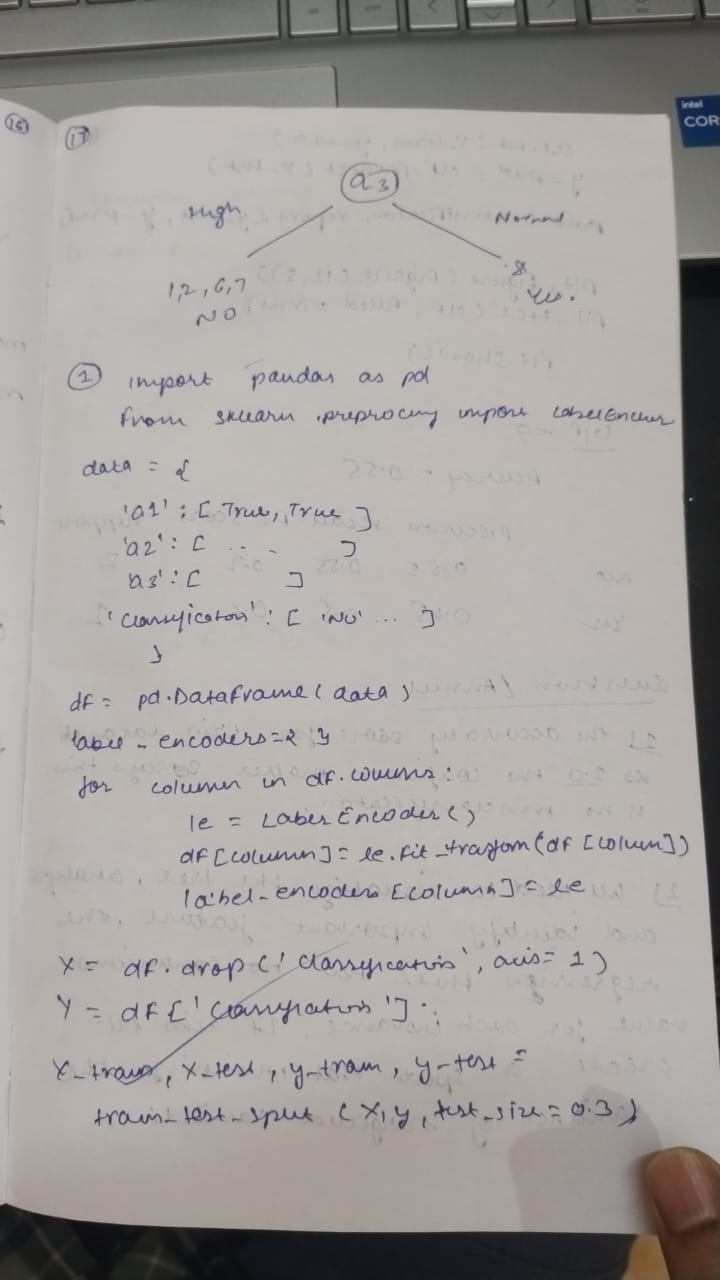 intel
COR
16
17
a3
High
Normal
1,2,6,7
NO
8
Yes.
1 import pandas as pd
from sklearn.preprocessing import LabelEncoder
data = {
'a1': [True, True]
'a2': [ ... ]
'a3': [ ]
'Classification': ['NO' ... ]
}
df = pd.DataFrame(data)
label-encoders={}
for column in df.columns:
le = LabelEncoder()
df[column]=le.fit_trasform(df[column])
label-encoders[column]=le
X = df.drop('Classification', axis=1)
Y = df['Classification'].
X-train, X-test, y-train, y-test =
train-test-split (X,y, test-size=0.3)